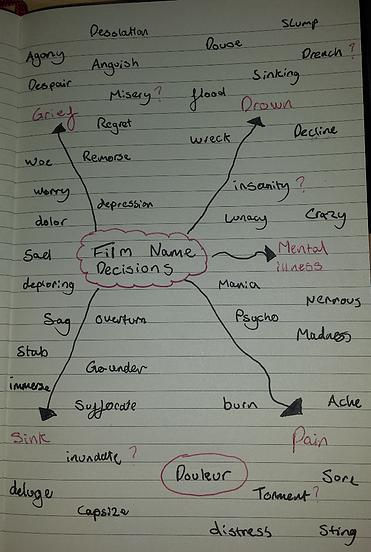 Desolation
Slump
Agony
Anguish
Douse
Drench ?
Despair
Misery ?
flood
Sinking
Grief
Drown
Regret
wreck
Decline
Woe
Remorse
worry
depression
insanity ?
dolor
Lunacy
Crazy
Sad
Film Name
Decisions
Mental
illness
deploring
Mania
Nervous
Sag
overturn
Psycho
Madness
Stab
Go-under
immerse
Suffocate
burn
Ache
Sink
Pain
inundate ?
Douleur
Sore
deluge
Torment ?
Capsize
distress
Sting